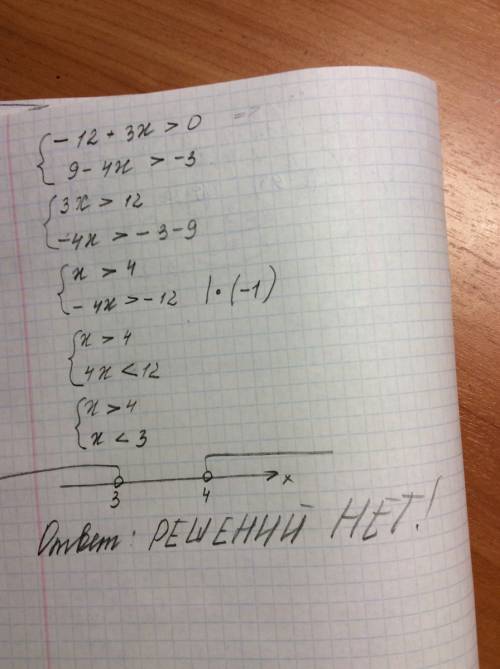 { -12 + 3x > 0
9 - 4x > -3
{ 3x > 12
-4x > -3-9
{ x > 4
-4x > -12 | • (-1)
{ x > 4
4x < 12
{ x > 4
x < 3
3 4 x
Ответ: РЕШЕНИЙ НЕТ!